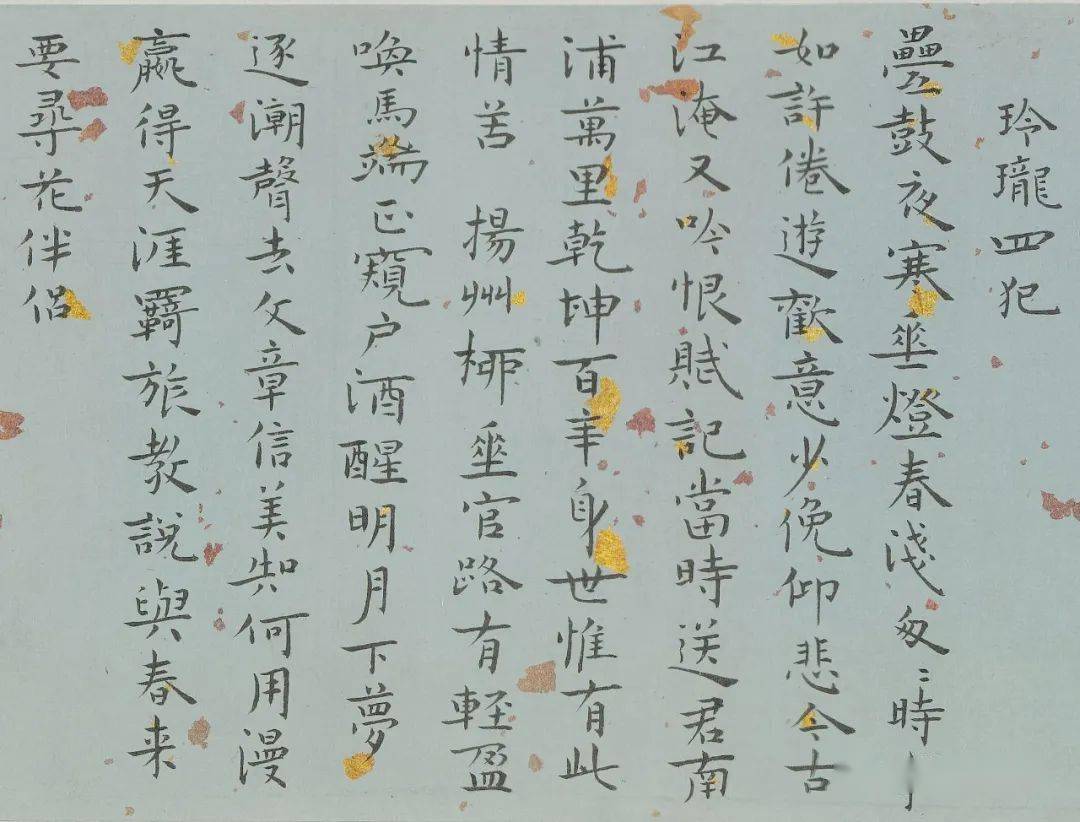 玲瓏四犯
疊鼓夜寒垂燈春淺匆〻時
如許倦遊歡意少俛仰悲今古
江淹又吟恨賦記當時送君南
浦萬里乾坤百年身世惟有此
情苦 揚州柳垂官路有輕盈
喚馬端正窺户酒醒明月下夢
逐潮聲去文章信美知何用漫
贏得天涯羈旅教說與春来
要尋花伴侶